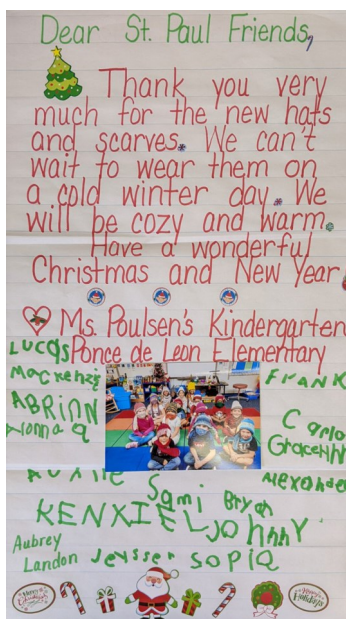 Dear St. Paul Friends,
Thank you very
much for the new hats
and scarves. We can't
wait to wear them on
a cold winter day. We
will be cozy and warm.
Have a wonderful
Christmas and New Year
Ms. Poulsen's Kindergarten
Ponce de Leon Elementary
Lucas
Mackenzi
FRANK
ABRIAN
Carlo
Gracelynn
Alexander
Sami
Bryan
KENXIEL
JohnnY
Aubrey
Landon
Jeysser
SOPIA
Happy Holidays